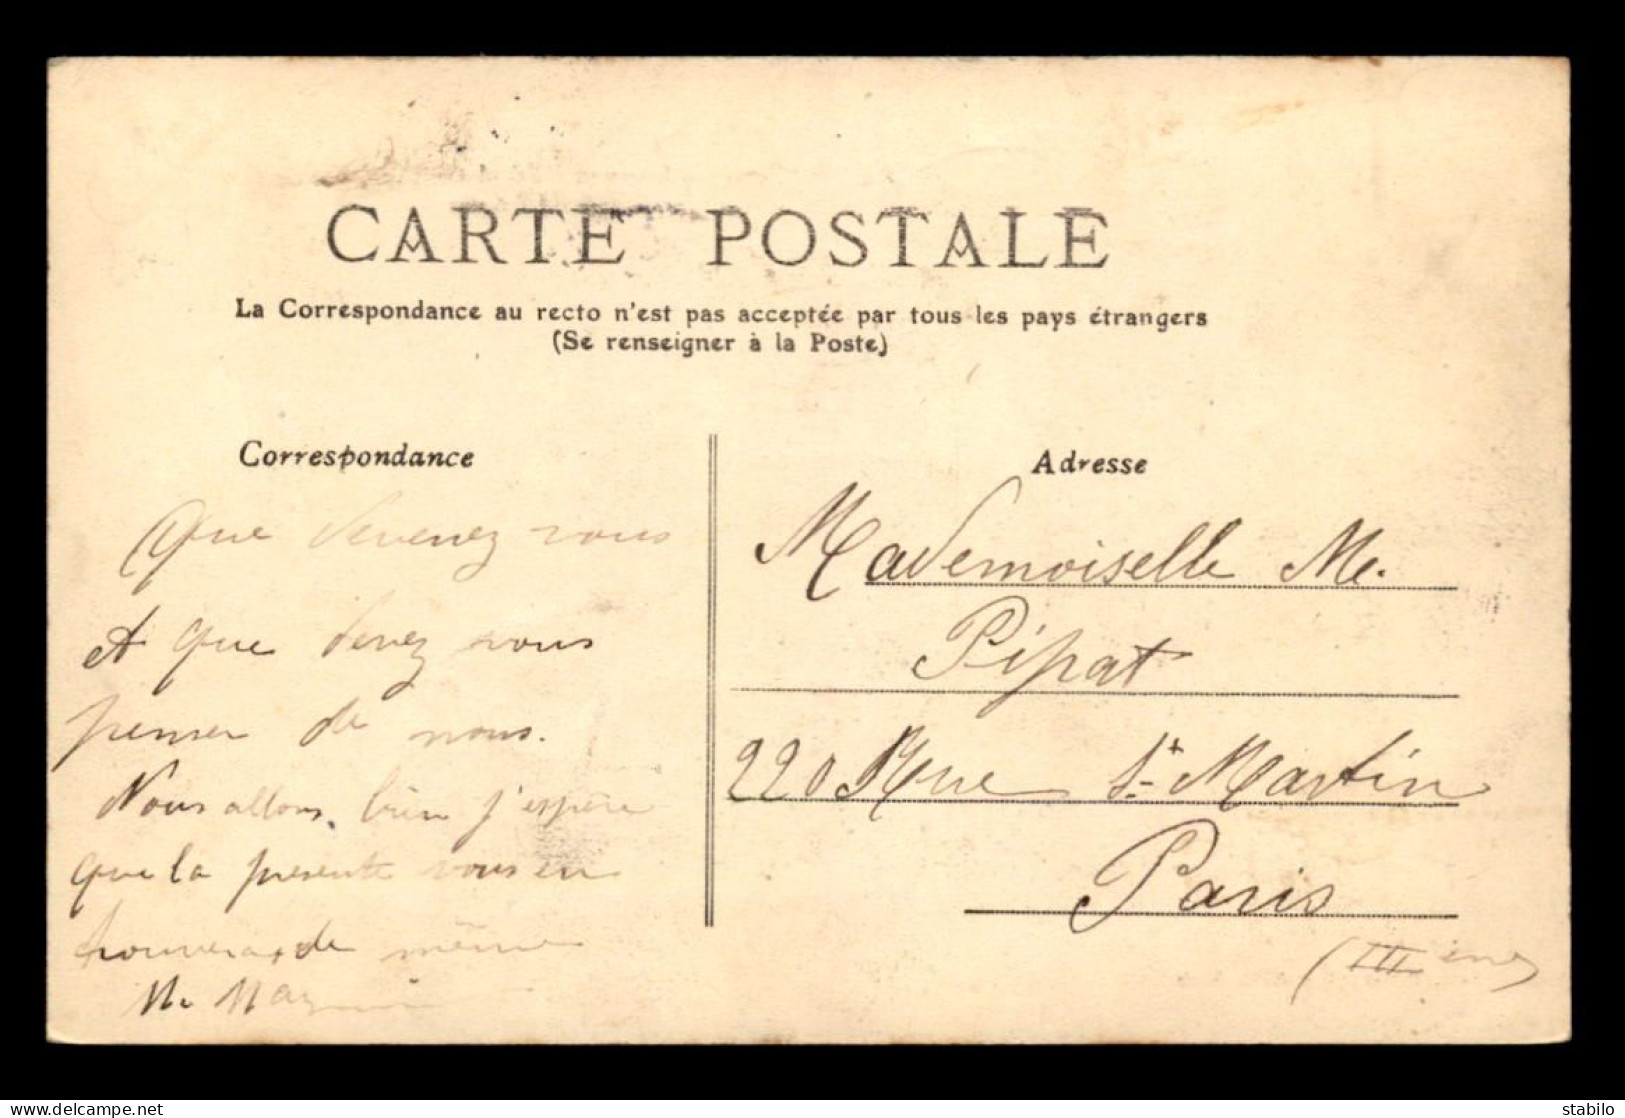 CARTE POSTALE
La Correspondance au recto n'est pas acceptée par tous les pays étrangers
(Se renseigner à la Poste)
Correspondance
Que devenez vous
et que devez vous
penser de nous.
Nous allons bien j'espère
que la présente vous en
trouvera de même
Adresse
Mademoiselle Me.
Pipat
220 Rue St Martin
Paris
(IIIème)
stabilo
delcampe.net